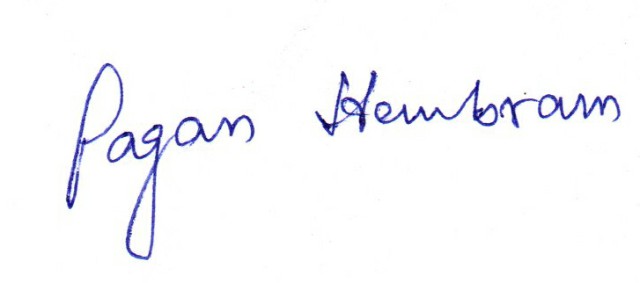 Pagan Hembram